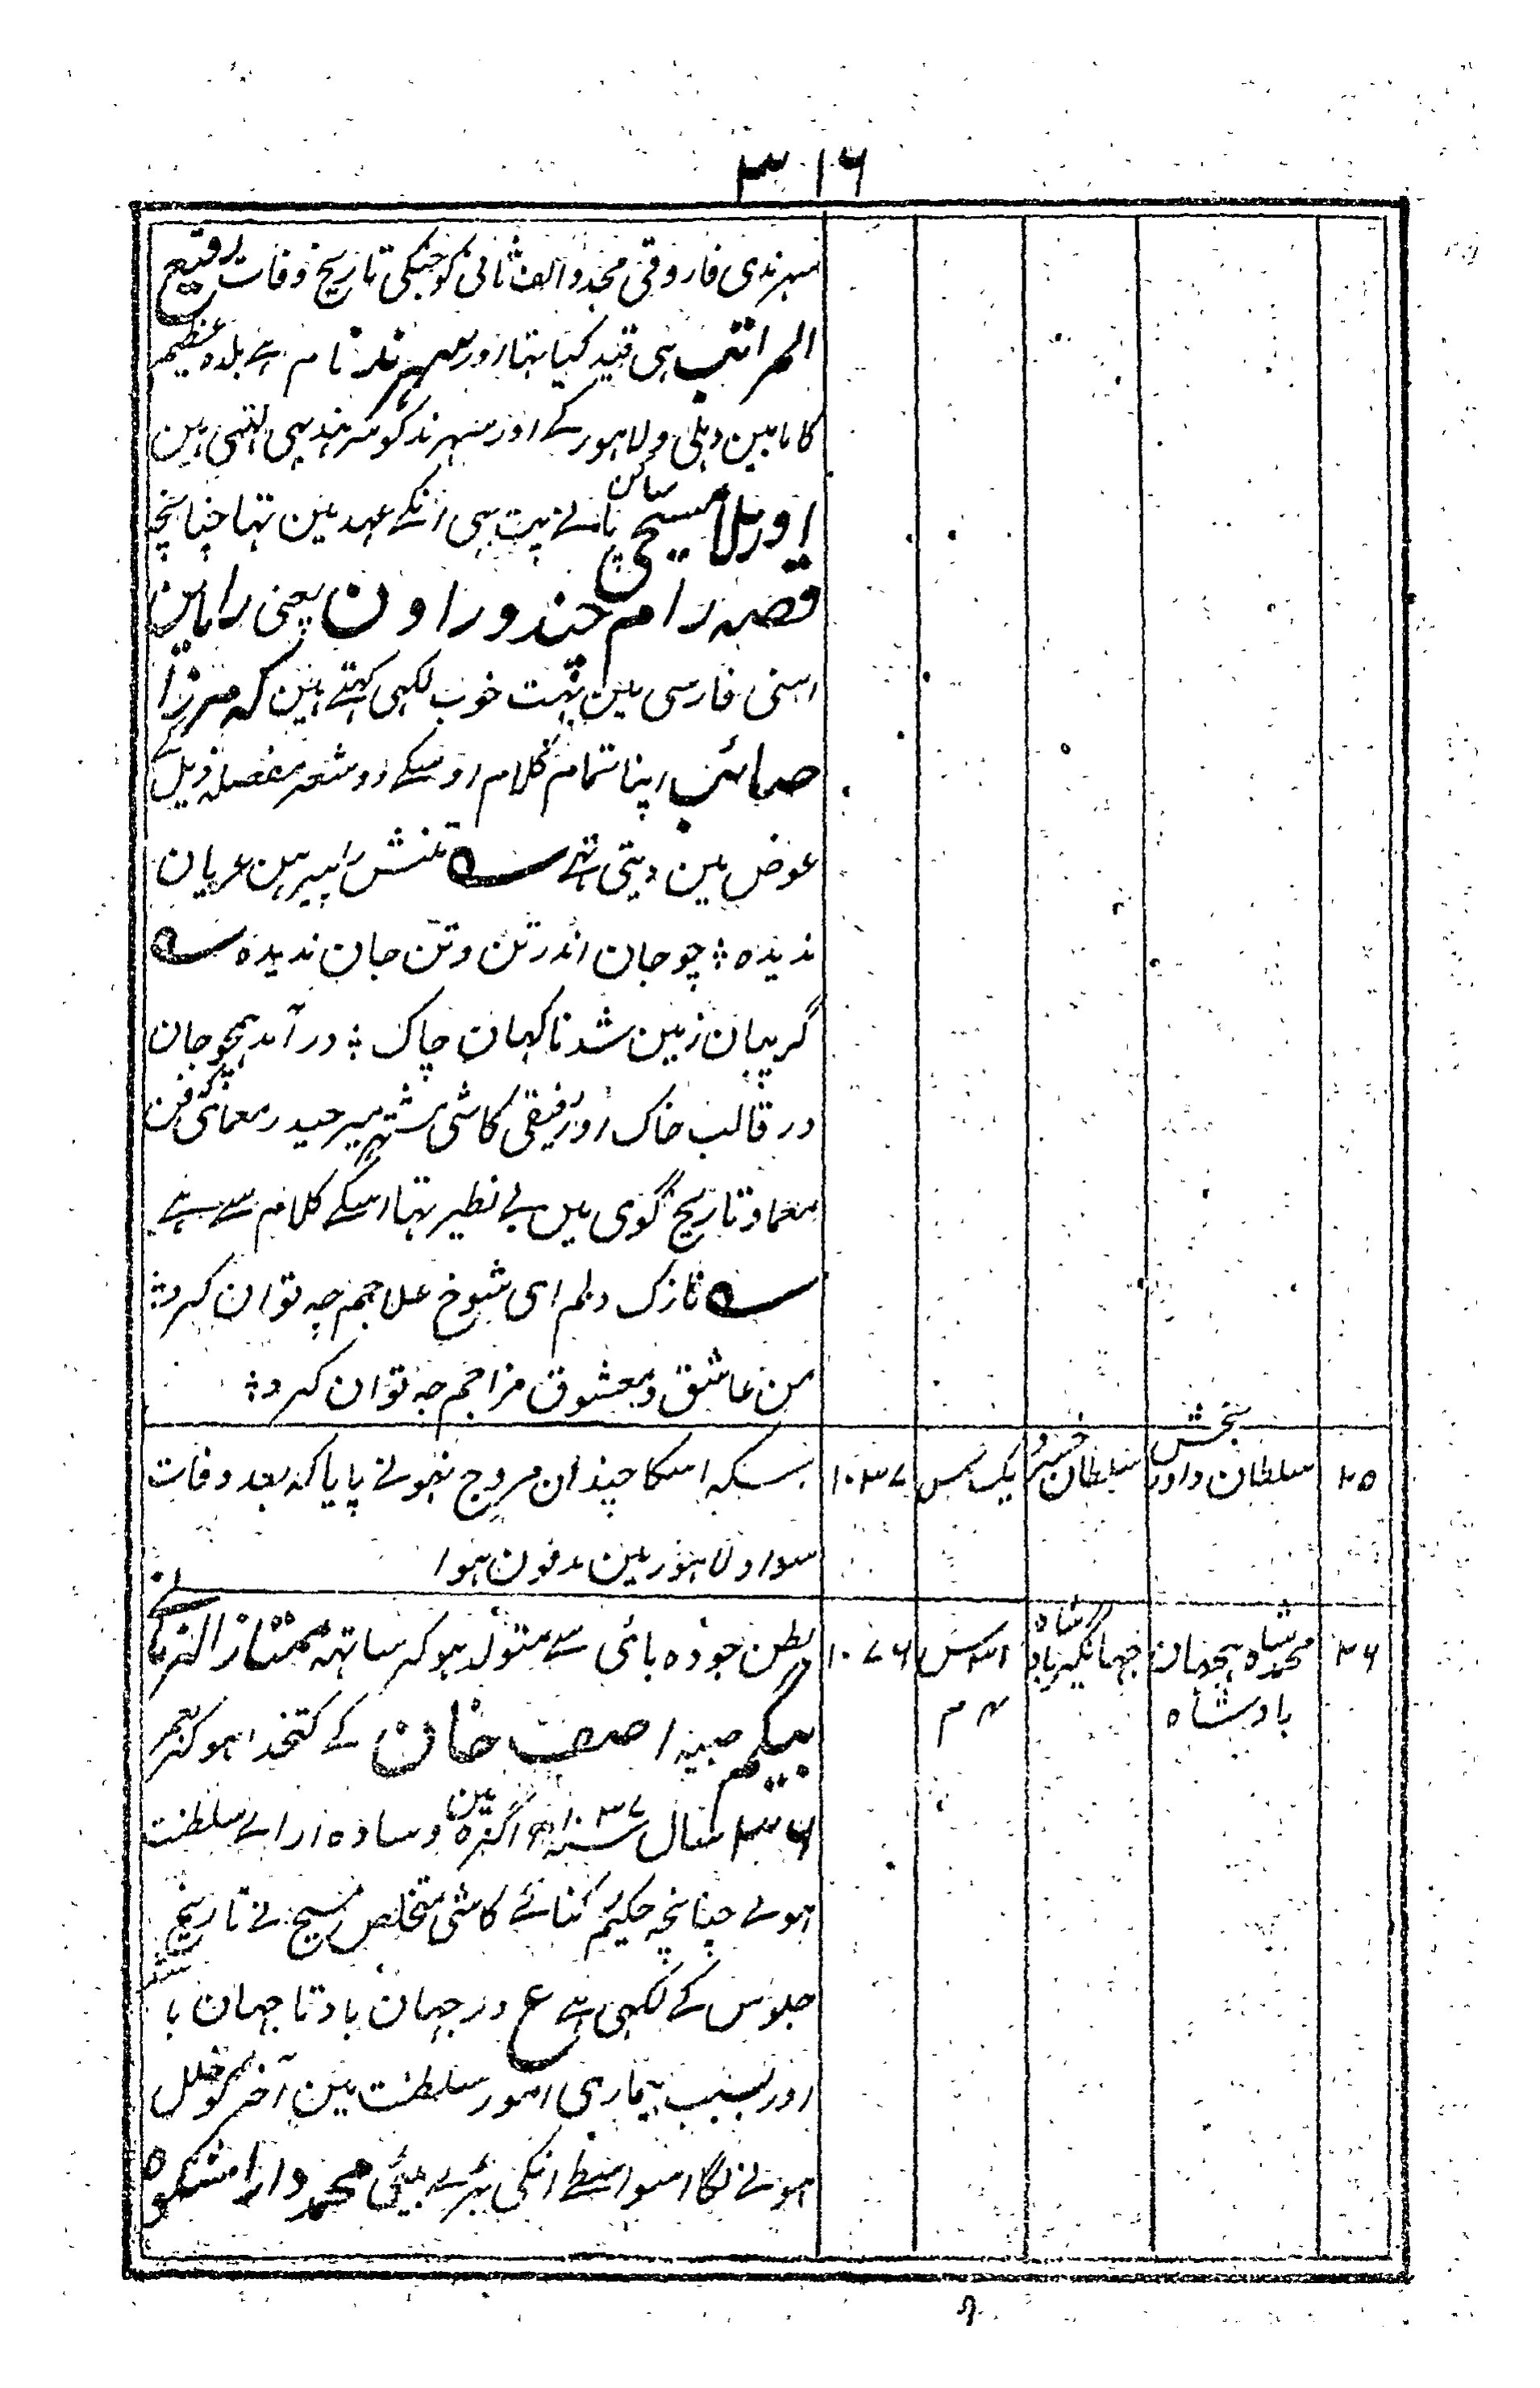 ۳۱۶
سہرندی فاروقی مجدد الف ثانی کو جنکی تاریخ وفات رفیع
المراتب ہی قید کیا تہا اور سہرند نام ہے بلدہ عظیم
کا مابین دہلی و لاہور کے اور سہرند کو سرہند بہی کہتی ہین
اور ملا مسیحی ساکن پانے پت بہی انکے عہد مین تہا چنانچہ
قصہ رام چند و راون یعنی راماین
اسنی فارسی مین بہت خوب لکہی کہتے ہین کہ مرزا
صائب اپنا تمام کلام اوسکے دو شعر مفصلہ ذیل کے
عوض مین دیتی تہے ؎ تنش را پیرہن عریان
ندیدہ ؞ چو جان اندر تن و تن جان ندیدہ ؎
گریبان زمین شد ناکہان چاک ؞ در آمد ہمچو جان
در قالب خاک اور رفیقی کاشی مشتہر میر حیدر معمائی فن
معما و تاریخ گوی مین بے نظیر تہا اسکے کلام سے ہے
؎ نازک دلم ای شوخ علاجم چہ توان کرد ؞
من عاشق و معشوق مزاجم چہ توان کرد ؞
۲۵ سلطان داور بخش سلطان خسرو یک سس ۱۰۳۷ سکہ اسکا چندان مروج نہونے پایا کہ بعد وفات
سواد لاہور مین مدفون ہوا
۲۶ محمد شاہجہان جہانگیر بادشاہ ۳۱ سس ۱۰۷۶ بطن جودہ بائی سے متولد ہو کر ساتہہ ممتاز الزمانے
بادشاہ م بیگم صبیہ اصف خان کے کتخدا ہو کر بعمر
۳۶ سال سنہ ۱۰۳۷ اگرہ مین وسادہ ارائے سلطنت
ہوئے چنانچہ حکیم کنائے کاشی متخلص مسیح نے تاریخ
جلوس کے لکہی ہے ع در جہان باد تا جہان باشد
اور بسبب بیماری امور سلطنت مین آخر کو خلل
ہونے لگا اسواسطے انکی بڑے بیٹی محمد دارا شکوہ